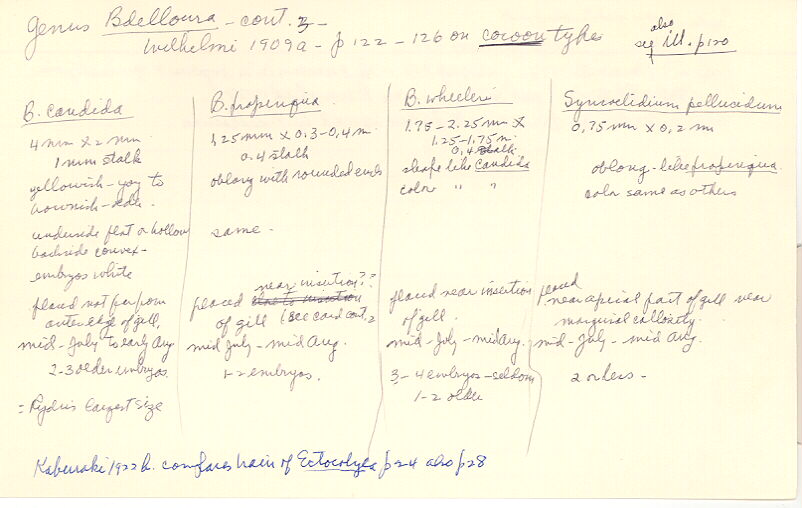 Genus Bdelloura - cont. 3 -
Wilhelmi 1909a - p 122 - 126 on cocoon type
also
see ill. p120
B. candida
4 mm x 2 mm
1 mm stalk
yellowish - gray to
brownish -
underside flat or hollow
backside convex -
embryos white
placed not far from
outer edge of gill.
mid - July to early Aug
2-3 older embryos.
= Ryder's largest size
B. propinqua
1.25 mm x 0.3 - 0.4 m.
0.4 stalk
oblong with rounded ends
same -
near insertion??
placed close to insertion
of gill (see card cont. 2
mid July - mid Aug.
1-2 embryos.
B. wheeleri
1.75 - 2.25 mm x
1.25 - 1.75 m.
0.4 stalk
shape like candida
color " "
placed near insertion
of gill.
mid - July - mid Aug.
3 - 4 embryos - seldom
1-2 older
Syncoelidium pellucidum
0,75 mm x 0,2 m
oblong - like propinqua
color same as others
placed
near apical part of gill near
marginal callosity.
mid - July - mid Aug.
2 others -
Kaburaki 1922b. compares hain of Ectocotyla p24 also p28